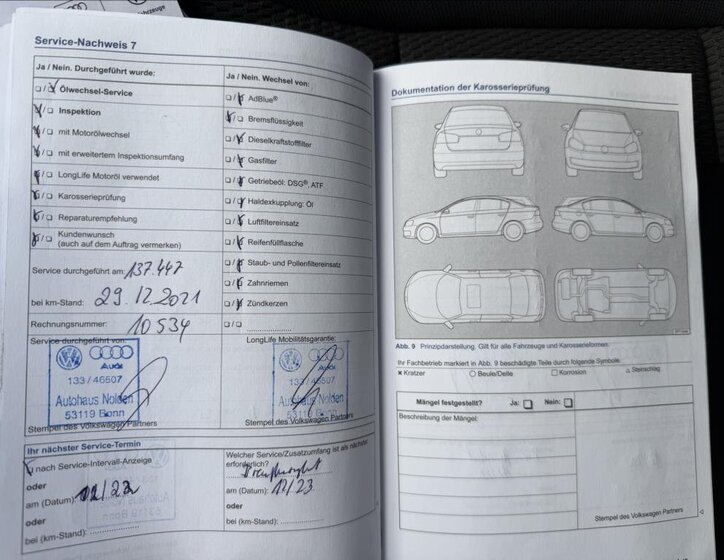 Service-Nachweis 7
Ja / Nein. Durchgeführt wurde:
Ölwechsel-Service
Inspektion
mit Motorölwechsel
mit erweitertem Inspektionsumfang
LongLife Motoröl verwendet
Karosserieprüfung
Reparaturempfehlung
Kundenwunsch
(auch auf dem Auftrag vermerken)
Service durchgeführt am: 137.447
bei km-Stand: 29.12.2021
Rechnungsnummer: 10534
Service durchgeführt von:
Audi
133 / 46507
Autohaus Nolden
53119 Bonn
Stempel des Volkswagen Partners
Ja / Nein. Wechsel von:
AdBlue®
Bremsflüssigkeit
Dieselkraftstofffilter
Gasfilter
Getriebeöl: DSG®, ATF
Haldexkupplung: Öl
Luftfiltereinsatz
Reifenfüllflasche
Staub- und Pollenfiltereinsatz
Zahnriemen
Zündkerzen
LongLife Mobilitätsgarantie:
Audi
133 / 46507
Autohaus Nolden
53119 Bonn
Stempel des Volkswagen Partners
Ihr nächster Service-Termin
nach Service-Intervall-Anzeige
oder
am (Datum):
oder
bei (km-Stand):
Welcher Service/Zusatzumfang ist als nächster
erforderlich?
am (Datum): 12/23
oder
bei (km-Stand):
Dokumentation der Karosserieprüfung
Abb. 9 Prinzipdarstellung. Gilt für alle Fahrzeuge und Karosserieformen.
Ihr Fachbetrieb markiert in Abb. 9 beschädigte Teile durch folgende Symbole:
× Kratzer ○ Beule/Delle □ Korrosion △ Steinschlag
Mängel festgestellt? Ja: Nein:
Beschreibung der Mängel:
Stempel des Volkswagen Partners